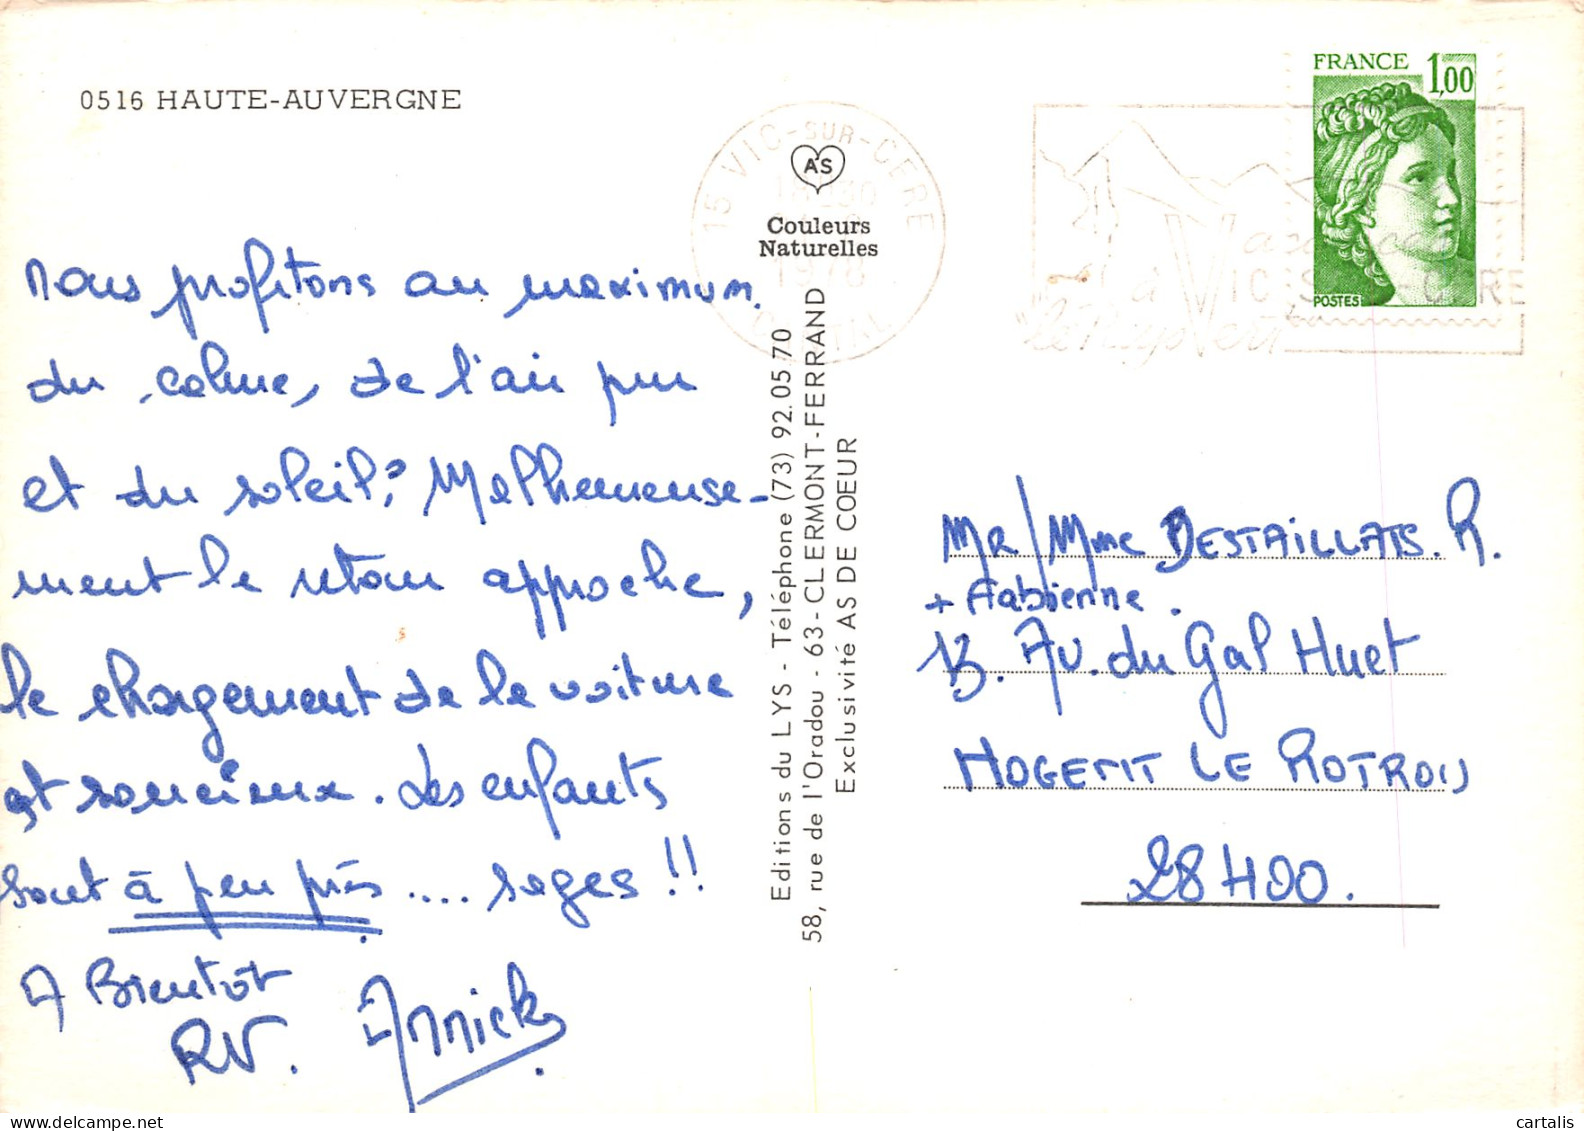 0516 HAUTE-AUVERGNE
FRANCE 1,00
POSTES
15 VIC-SUR-CERE
18H30
1978
CANTAL
AS
Couleurs
Naturelles
Vacances
à VIC SUR CERE
Nous profitons au maximum
du calme, de l'air pur
et du soleil. Malheureuse-
ment le retour approche,
le chargement de la voiture
est soucieux. Les enfants
sont à peu près .... sages !!
A Bientôt
RV. Annick
Editions du LYS - Téléphone (73) 92.05.70
58, rue de l'Oradou - 63 - CLERMONT-FERRAND
Exclusivité AS DE COEUR
Mr/Mme DESTAILLATS. R.
+ Fabienne.
13. Av. du Gal Huet
NOGENT LE ROTROU
28400.
cartalis